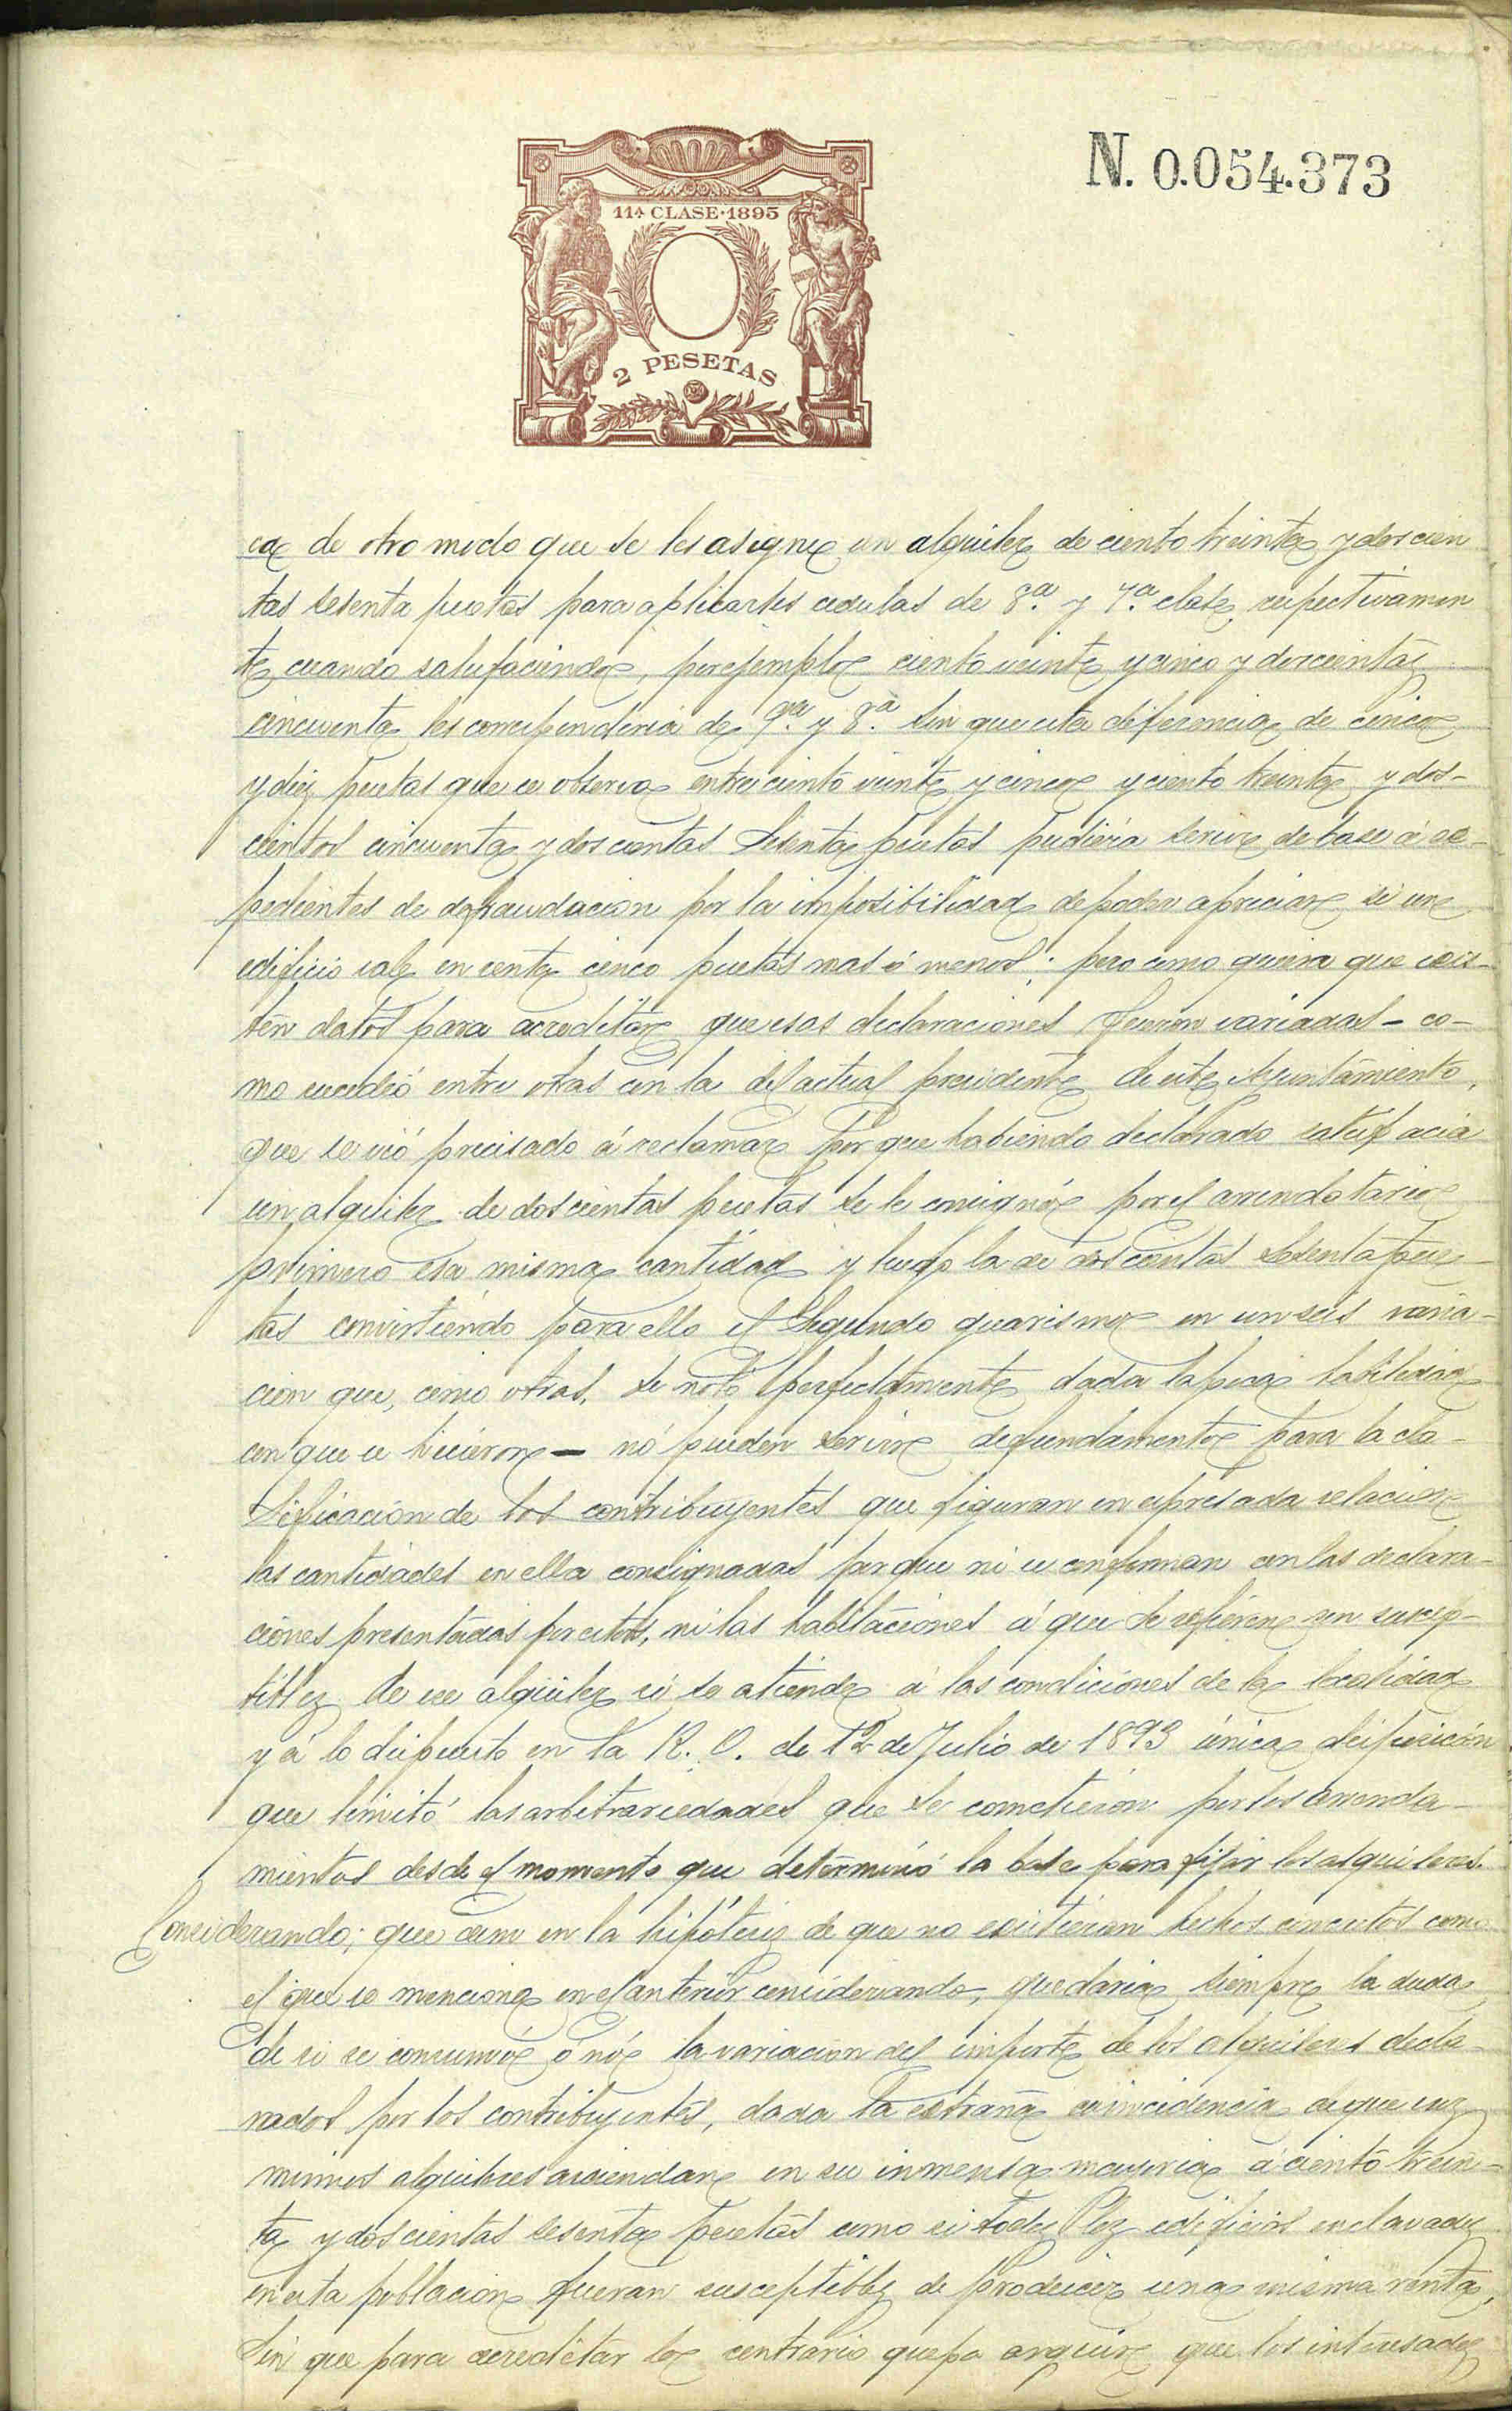 N. 0.054.373
11ª CLASE·1895
2 PESETAS
ca de otro modo que se les asigne un alquiler de ciento treinta y doscien
tas sesenta pesetas para aplicarles cedulas de 8.ª y 7.ª clase, respectivamen
te cuando satisfaciendo, por ejemplo ciento veinte y cinco y doscientas
cincuenta les correspondería de 9.ª y 8.ª sin que esta diferencia de cinco
y diez pesetas que se observa entre ciento veinte y cinco y ciento treinta y dos-
cientos cincuenta y doscientas sesenta pesetas pudiera servir de base á ex-
pedientes de defraudacion por la imposibilidad de poder apreciar si un
edificio vale en renta cinco pesetas mas ó menos: pero como quiera que exis-
ten datos para acreditar que esas declaraciones fueron variadas - co-
mo sucedió entre otras con la del actual presidente de este Ayuntamiento,
que se vió precisado á reclamar por que habiendo declarado satisfacia
un alquiler de doscientas pesetas se le consignó por el arrendatario
primero esa misma cantidad y luego la de doscientas sesenta pese-
tas convirtiendo para ello el segundo guarismo en un seis varia-
cion que, como otras, se notó perfectamente dada la poca habilidad
con que se hicieron - nó pueden servir de fundamento para la cla-
sificación de los contribuyentes que figuran en expresada relacion
las cantidades en ella consignadas porque ni se conforman con las declara-
ciones presentadas por estos, ni las habitaciones á que se refieren son suscep-
tibles de ese alquiler si se atiende á las condiciones de la localidad
y á lo dispuesto en la R. O. de 12 de Julio de 1893 única disposición
que limitó las arbitrariedades que se cometieron por los arrenda-
mientos desde el momento que determinó la base para fijar los alquileres.
Considerando; que aun en la hipótesis de que no existieran hechos concretos como
el que se menciona en el anterior considerando, quedaria siempre la duda
de si se consumó ó nó la variacion del importe de los alquileres decla-
rados por los contribuyentes, dada la estraña coincidencia de que esos
mismos alquileres asciendan en su inmensa mayoria á ciento trein-
ta y doscientas sesenta pesetas como si todos los edificios enclavados
en esta poblacion fueran susceptibles de producir una misma renta,
sin que para acreditar lo contrario quepa arguir que los interesados